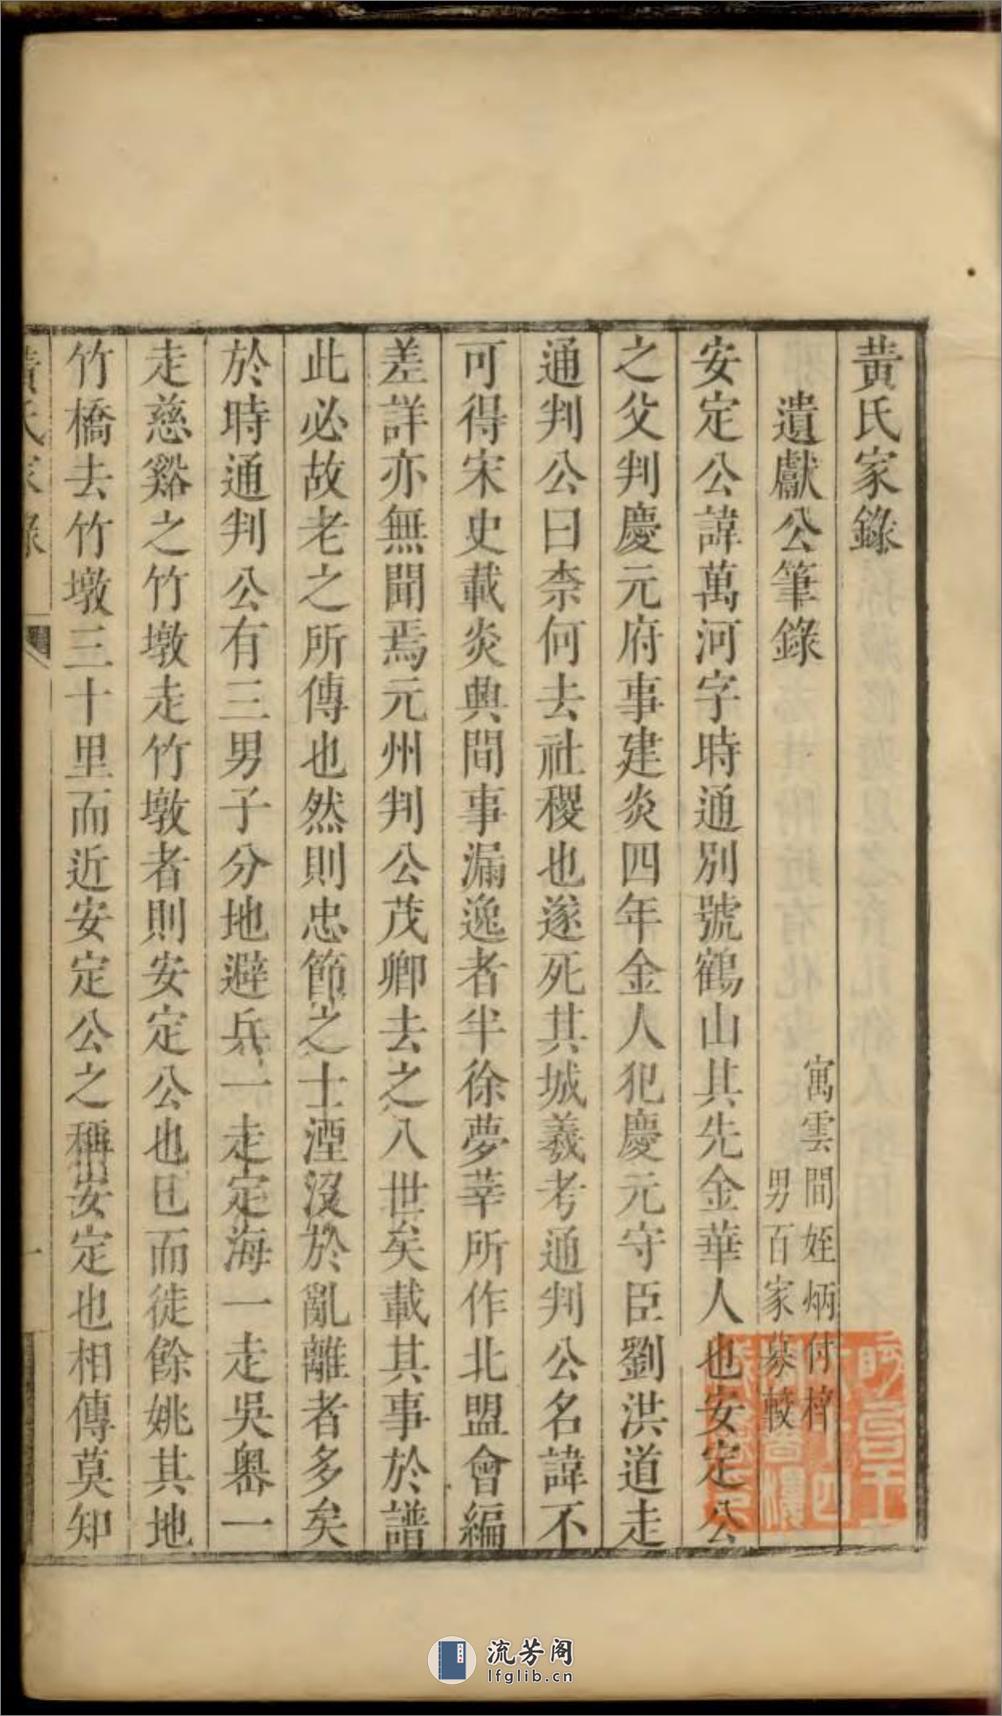 黃氏家錄
遺獻公筆錄
寓雲間姪炳付梓
男百家纂較
安定公諱萬河字時通別號鶴山其先金華人也安定公
之父判慶元府事建炎四年金人犯慶元守臣劉洪道走
通判公曰柰何去社稷也遂死其城義考通判公名諱不
可得宋史載炎興間事漏逸者半徐夢莘所作北盟會編
差詳亦無聞焉元州判公茂卿去之八世矣載其事於譜
此必故老之所傳也然則忠節之士湮沒於亂離者多矣
於時通判公有三男子分地避兵一走定海一走吳粵一
走慈谿之竹墩走竹墩者則安定公也已而徒餘姚其地
竹橋去竹墩三十里而近安定公之稱安定也相傳莫知
黃氏家錄
一
流芳阁
lfglib.cn